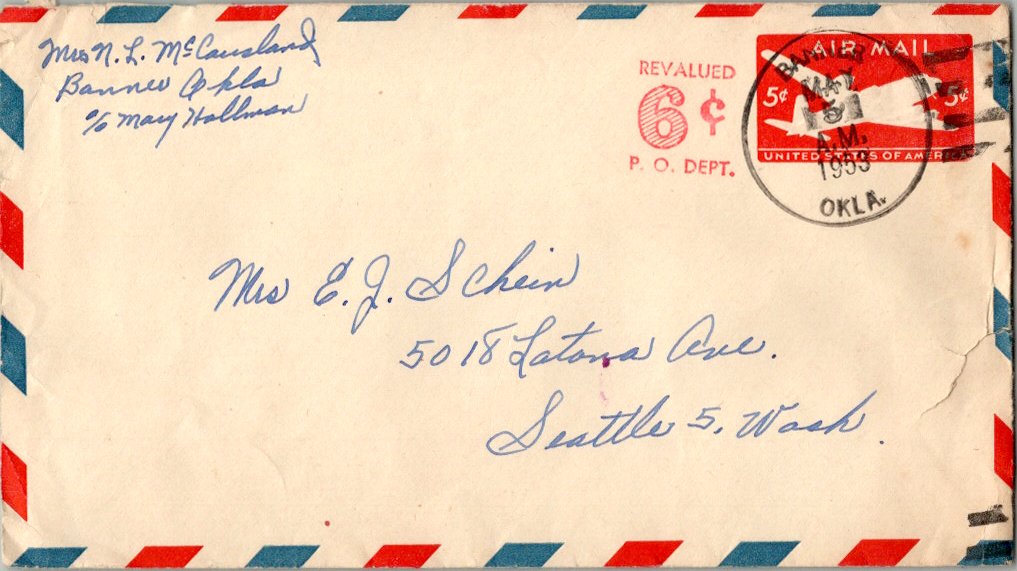 Mrs N. L. McCausland
Banner Okla
c/o Mary Hallman
REVALUED
6¢
P. O. DEPT.
AIR MAIL
5¢ 5¢
UNITED STATES OF AMERICA
BANNER
5
A.M.
1953
OKLA.
Mrs E. J. Schein
5018 Latona Ave.
Seattle 5, Wash.